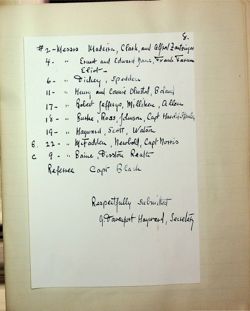 8.
#2 - Messrs Madeira, Clark, and Alfred
4 - " Ernest and Edward
Eliot -
6 - " Dickey, Spedden
11 - " Henry and Connie Oliphant, Boland
17 - " Robert Jefferys, Milliken, Allen
18 - " Burke, Ross, Johnson, Capt
19 - " Hayward, Scott, Watson
B. 22 - " McFadden, Newbold, Capt Norris
C 9 - " Baine, Disston
Referee Capt Black
Respectfully submitted
G Davenport Hayward, Secretary